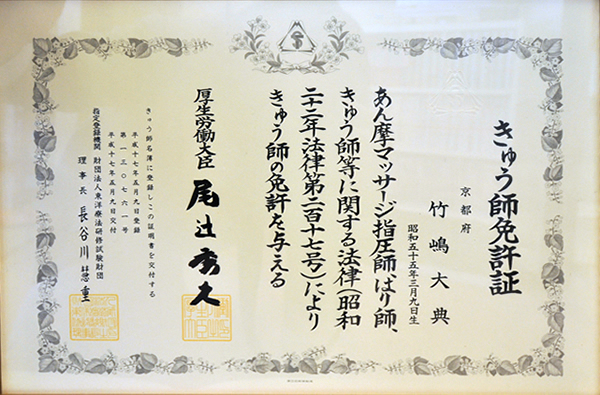 きゅう師免許証
京都府
竹嶋大典
昭和五十五年三月九日生
あん摩マッサージ指圧師、はり師、
きゅう師等に関する法律(昭和
二十二年法律第二百十七号)により
きゅう師の免許を与える
厚生労働大臣 尾辻秀久
きゅう師名簿に登録しこの証明書を交付する
平成十七年五月九日登録
第一三〇七六一号
平成十七年五月九日交付
指定登録機関 財団法人東洋療法研修試験財団
理事長 長谷川慧重